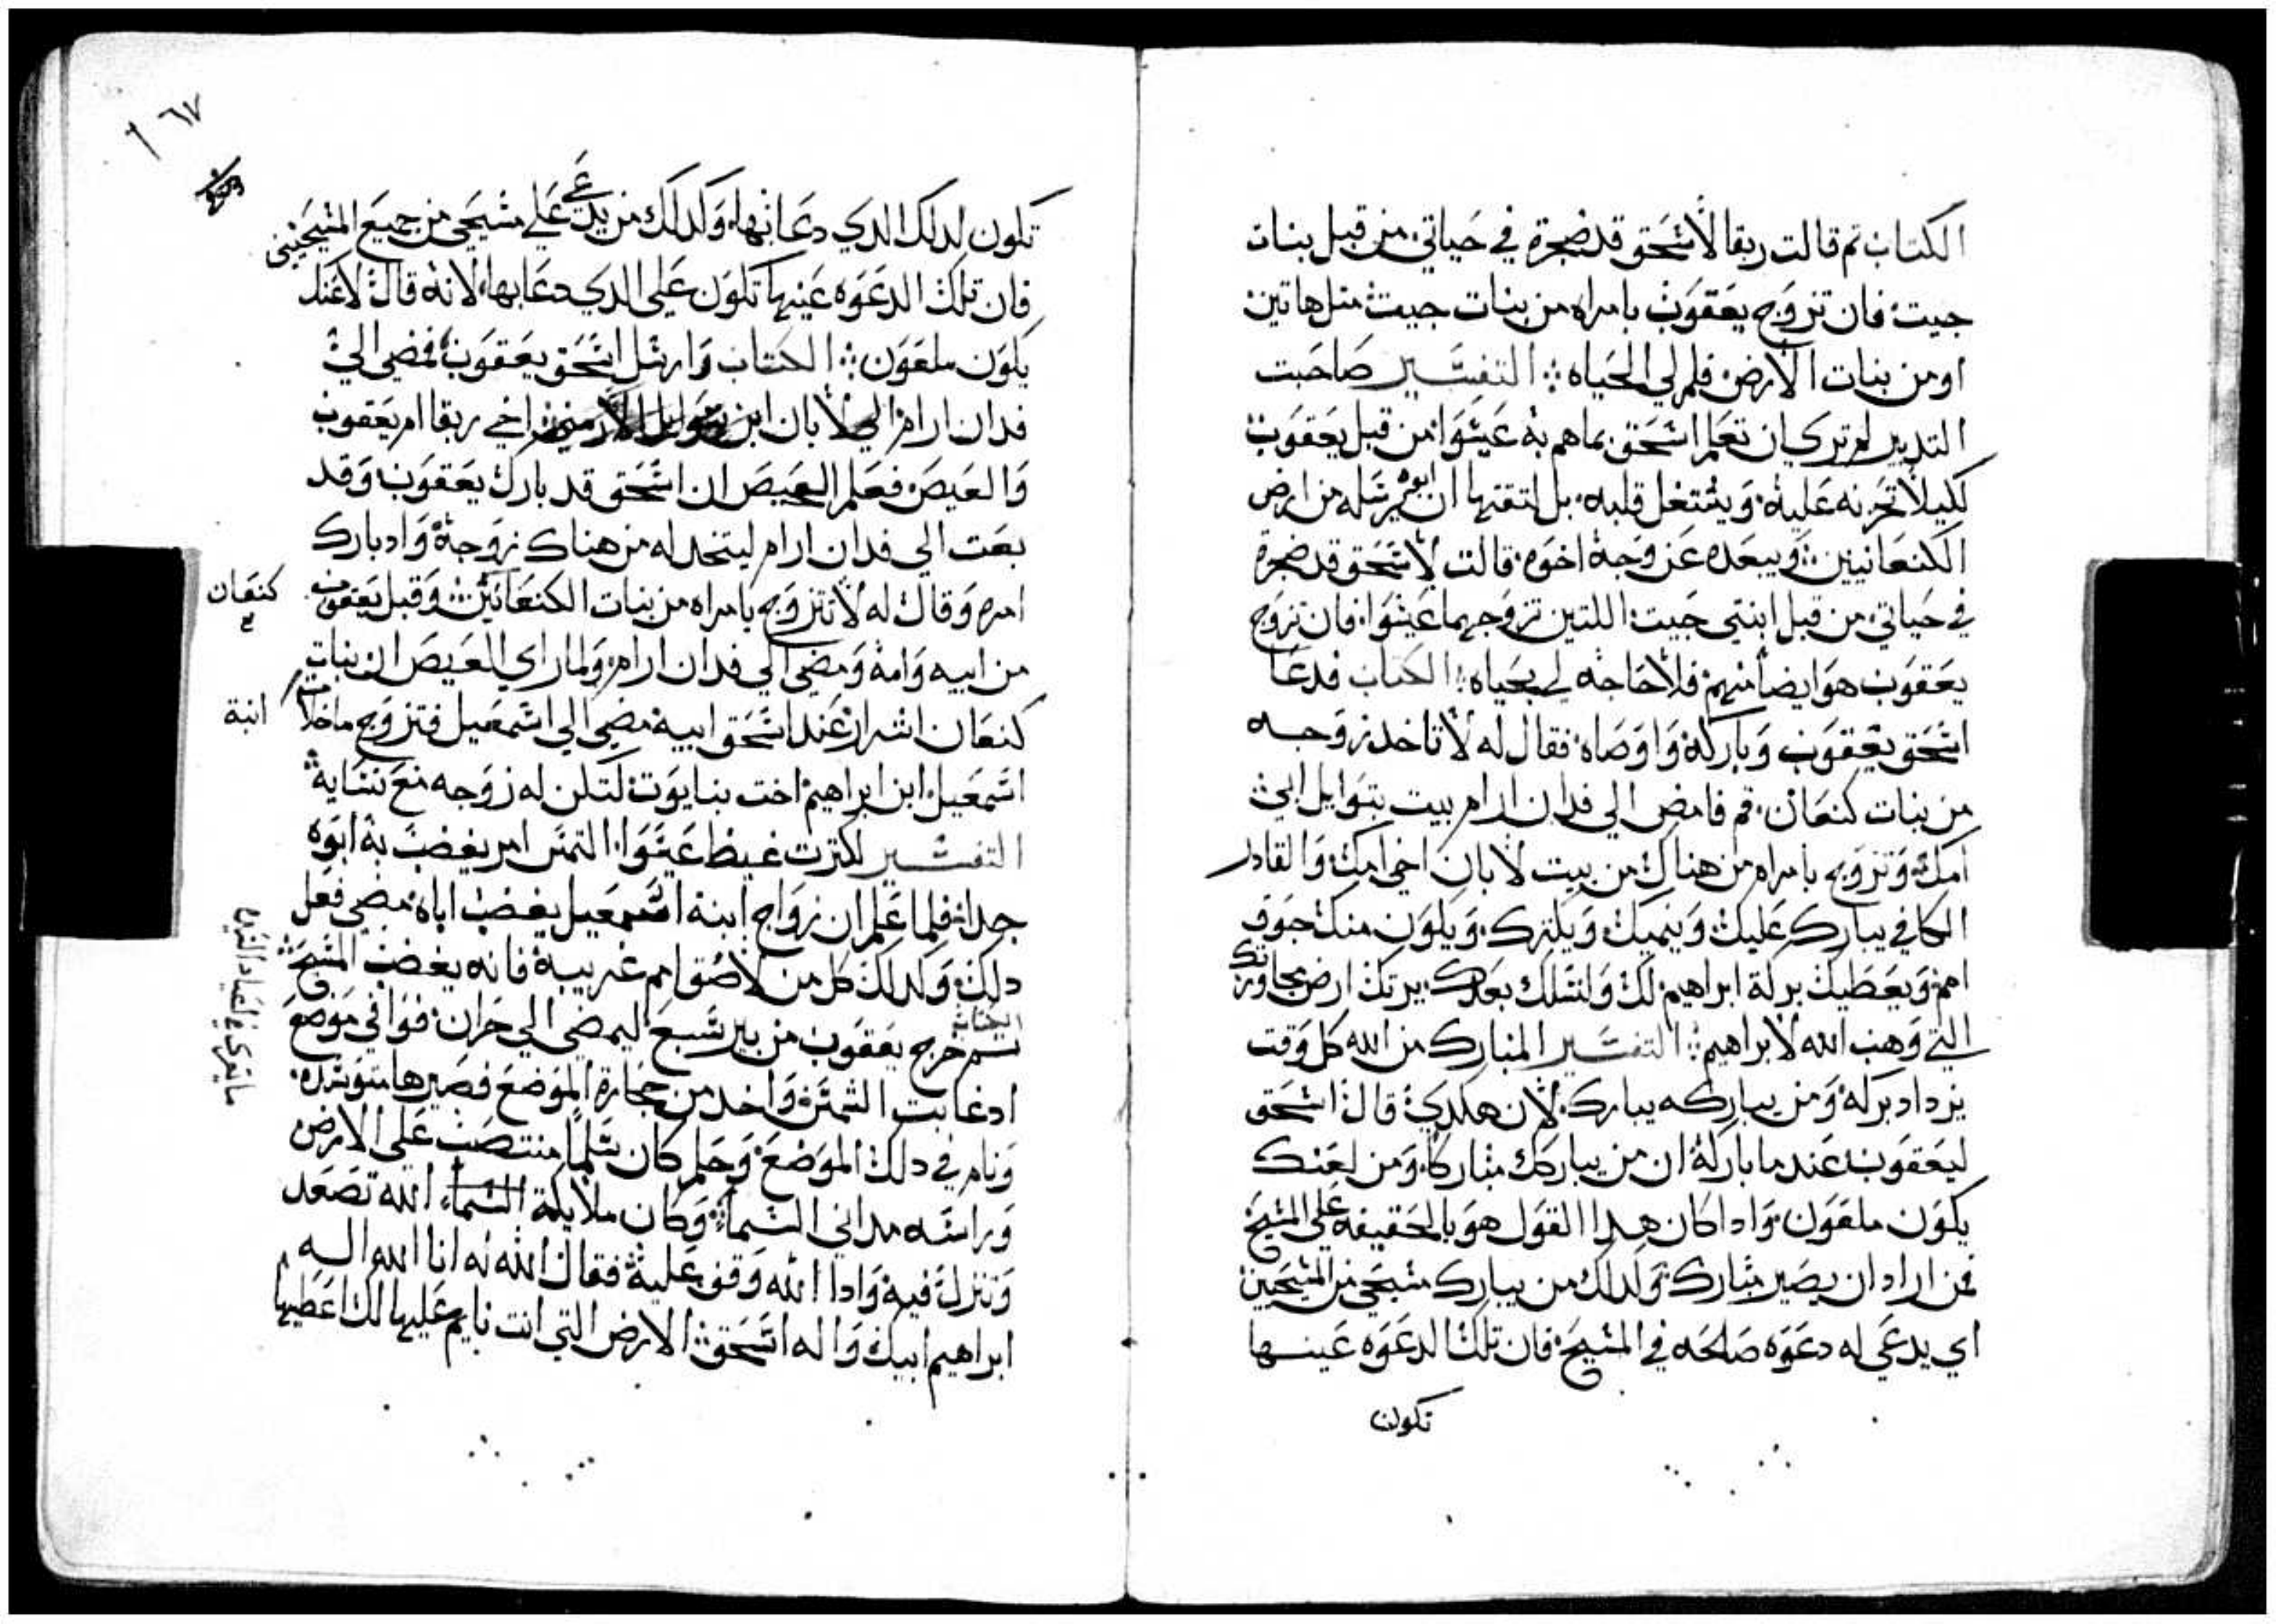 الكتاب تم قالت ربقا لاسحق قد ضجرة في حياتي من قبل بنات
جيت فان تزوج يعقوب بامراه من بنات جيت متل هاتين
او من بنات الارض فلم لي الحياه ؞ التفسير صاحبت
التدبير لم تري ان تعلم اسحق بما هم به عيسوا من قبل يعقوب
لكيلا تحزنه عليه ويشتغل قلبه بل لتقتها ان ابوه يرسله من ارض
الكنعانيين ويبعده عن وجه اخوه قالت لاسحق قد ضجرة
في حياتي من قبل ابنتي جيت اللتين تزوجهما عيسوا فان تزوج
يعقوب هو ايضا منهم فلا حاجه لي بحياه ؞ الكتاب فدعا
اسحق يعقوب وباركه واوصاه فقال له لا تاخد زوجه
من بنات كنعان قم فامض الي فدان ارام بيت بتوايل ابي
امك وتزوج بامراه من هناك من بيت لابان اخي امك والقادر
الكافي يبارك عليك وينميك ويكترك ويكون منك جوف
امم ويعطيك بركة ابراهيم لك ولنسلك بعدك يرتك ارض مجاورتك
التي وهب الله لابراهيم ؞ التفسير المبارك من الله كل وقت
يزداد بركه ومن يباركه يبارك لان هكدي قال اسحق
ليعقوب عندما باركه ان من يباركك مباركا ومن لعنك
يكون ملعون وادا كان هدا القول هو بالحقيقه علي المسيح
فمن اراد ان يصير مبارك وكدلك من يبارك مسيحي من المسيحيين
اي يدعي له دعوه صالحه في المسيح فان تلك الدعوه عينها
تكون
٦٧
تكون لدلك الدي دعا بها وكدلك من يدعي علي مسيحي من جميع المسيحيين
فان تلك الدعوه عينها تكون علي الدي دعا بها لانه قال لاعنك
يكون ملعون ؞ الكتاب وارسل اسحق يعقوب فمضي الي
فدان ارام الي لابان ابن بتوايل الارمني اخي ربقا ام يعقوب
والعيص فعلم العيص ان اسحق قد بارك يعقوب وقد
بعت الي فدان ارام ليتخد له من هناك زوجة واد بارك
امره وقال له لا تتزوج بامراه من بنات الكنعانين وقبل يعقوب
كنعان
من ابيه وامه ومضي الي فدان ارام ولما راي العيص ان بنات
كنعان اشرار عند اسحق ابيه مضي الي اسمعيل فتزوج ماخلات
ابنة
اسمعيل ابن ابراهيم اخت بنايوت لتكن له زوجه مع نسايه
التفسير لكترت غيظ عيسوا التمس امر يغضب به ابوه
جدا فلما علم ان زواج ابنة اسمعيل يغضب اباه مضي فعل
دلك وكدلك كل من لاصق امم غريبه فانه يغضب المسيح
الكتاب
تم خرج يعقوب من بير سبع ليمضي الي حران فوافي موضع
اد غابت الشمس واخد من حجارة الموضع فصيرها متوسده
ونام في دلك الموضع وحلم كان سلما منتصب علي الارض
وراسه مداني السما وكان ملايكة السماء الله تصعد
وتنزل فيه وادا الله وقف عليه فقال الله له انا الله اله
ابراهيم ابيك واله اسحق الارض التي انت نايم عليها لك اعطيها